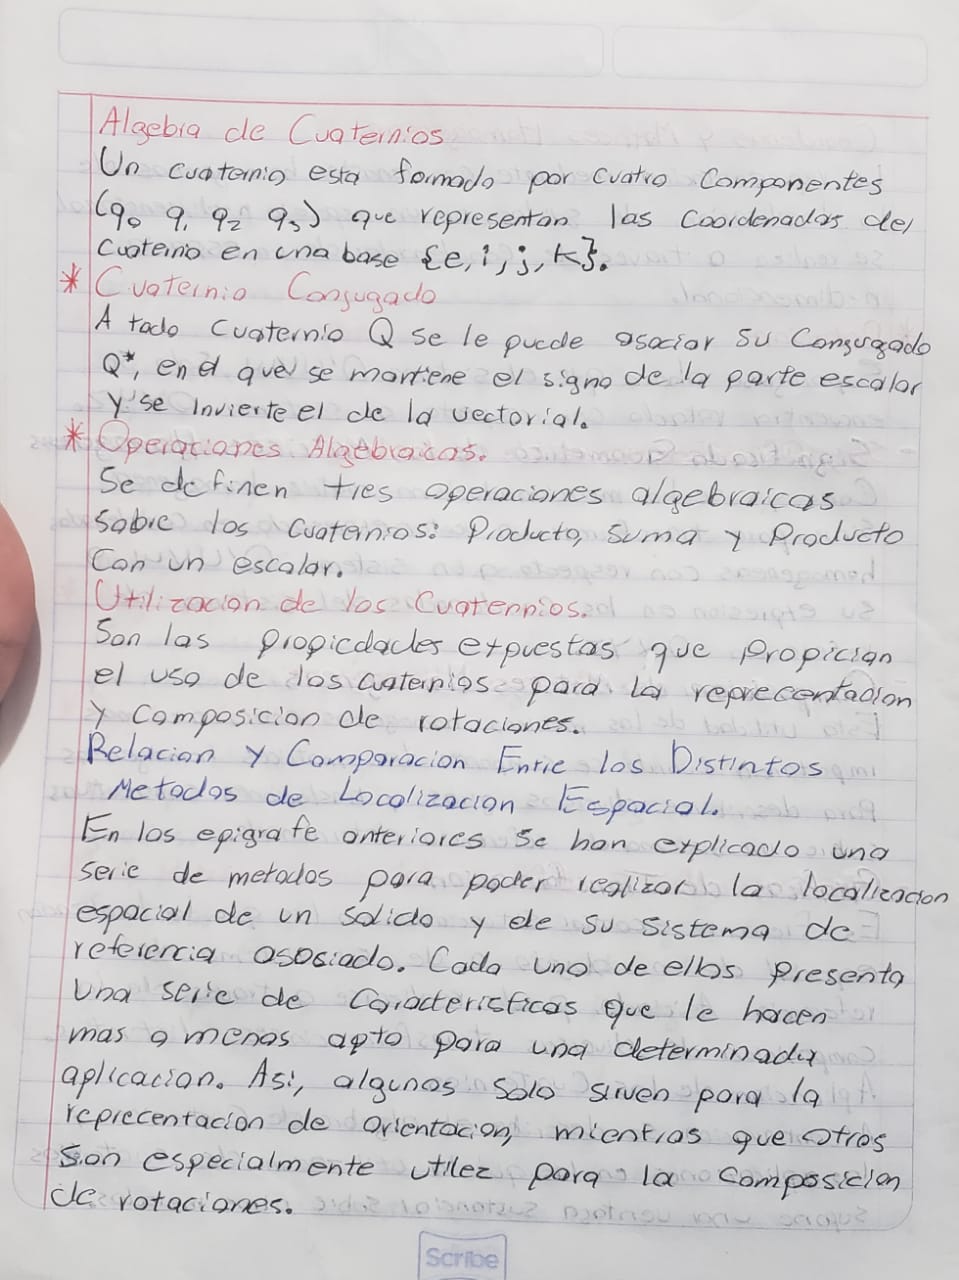 Algebra de Cuaternios
Un cuaternio esta formado por cuatro componentes
(q0 q1 q2 q3) que representan las coordenadas del
cuaternio en una base {e, i, j, k}.
* Cuaternio Conjugado
A todo cuaternio Q se le puede asociar su Conjugado
Q*, en el que se mantiene el signo de la parte escalar
y se invierte el de la vectorial.
* Operaciones Algebraicas.
Se definen tres operaciones algebraicas
sobre los cuaternios: Producto, suma y Producto
con un escalar.
Utilizacion de los Cuaternios.
Son las propiedades expuestas que propician
el uso de los cuaternios para la reprecentacion
y composicion de rotaciones.
Relacion y Comparacion Entre los Distintos
Metodos de Localizacion Espacial.
En los epigrafe anteriores se han explicado una
serie de metodos para poder realizar la localizacion
espacial de un solido y de su sistema de
referencia asosiado. Cada uno de ellos presenta
una serie de caracteristicas que le hacen
mas o menos apto para una determinada
aplicacion. Asi, algunos solo sirven para la
reprecentacion de orientacion, mientras que otros
son especialmente utilez para la composicion
de rotaciones.
Scribe